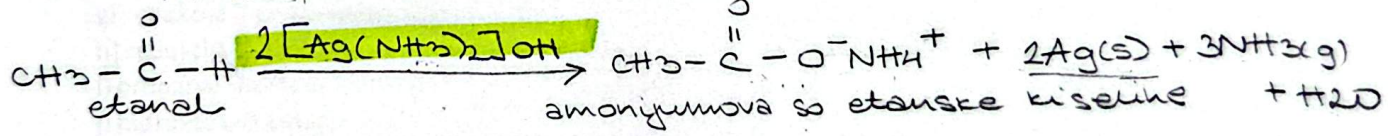 O O
CH3 - C - H 2[Ag(NH3)2]OH → CH3 - C - O⁻NH4⁺ + 2Ag(s) + 3NH3(g)
etanal amonijumova so etanske kiseline + H2O